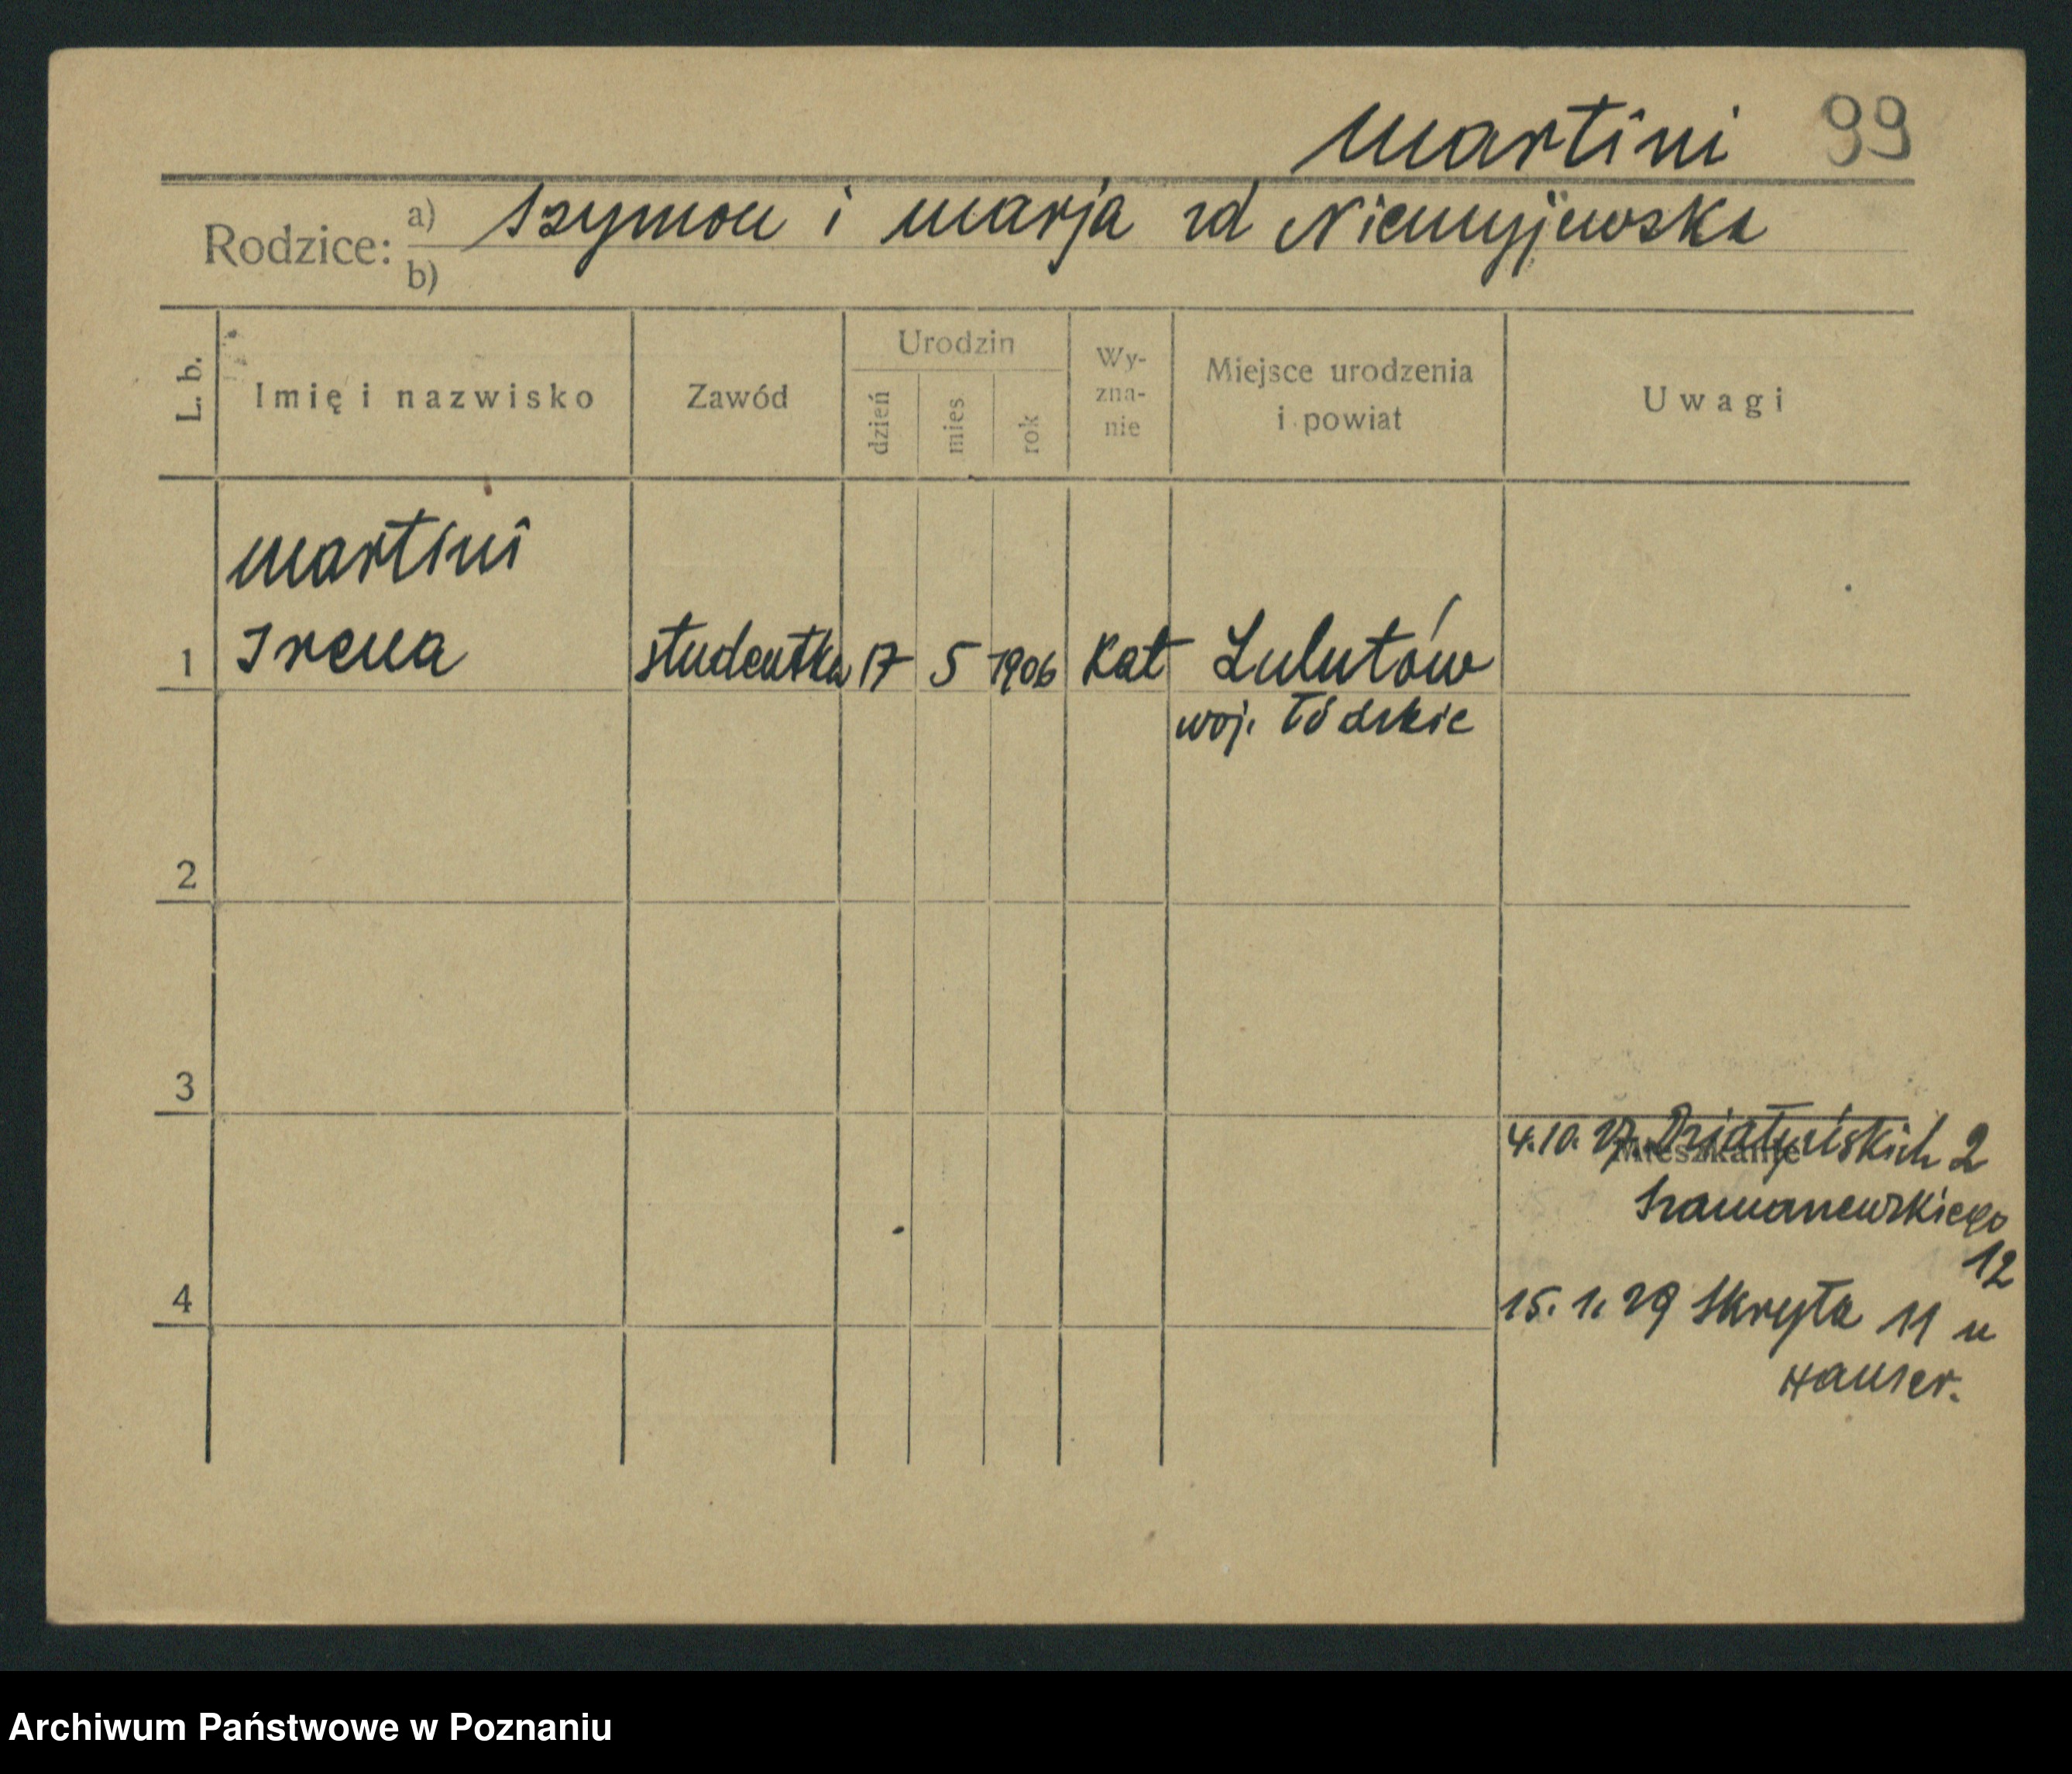 Martini 99
Rodzice: a) Szymon i Marja zd Niemyjewska
b)
L. b.
Imię i nazwisko
Zawód
Urodzin
dzień
mies
rok
Wy-
zna-
nie
Miejsce urodzenia
i powiat
Uwagi
Martini
1 Irena studentka 17 5 1906 kat Lulutów
woj. Łódzkie
2
3
4.10.27. Działyńskich 2
Mieszkanie
Szamarzewskiego
12
4
15.1.29 Skryta 11 u
Hauser.
Archiwum Państwowe w Poznaniu